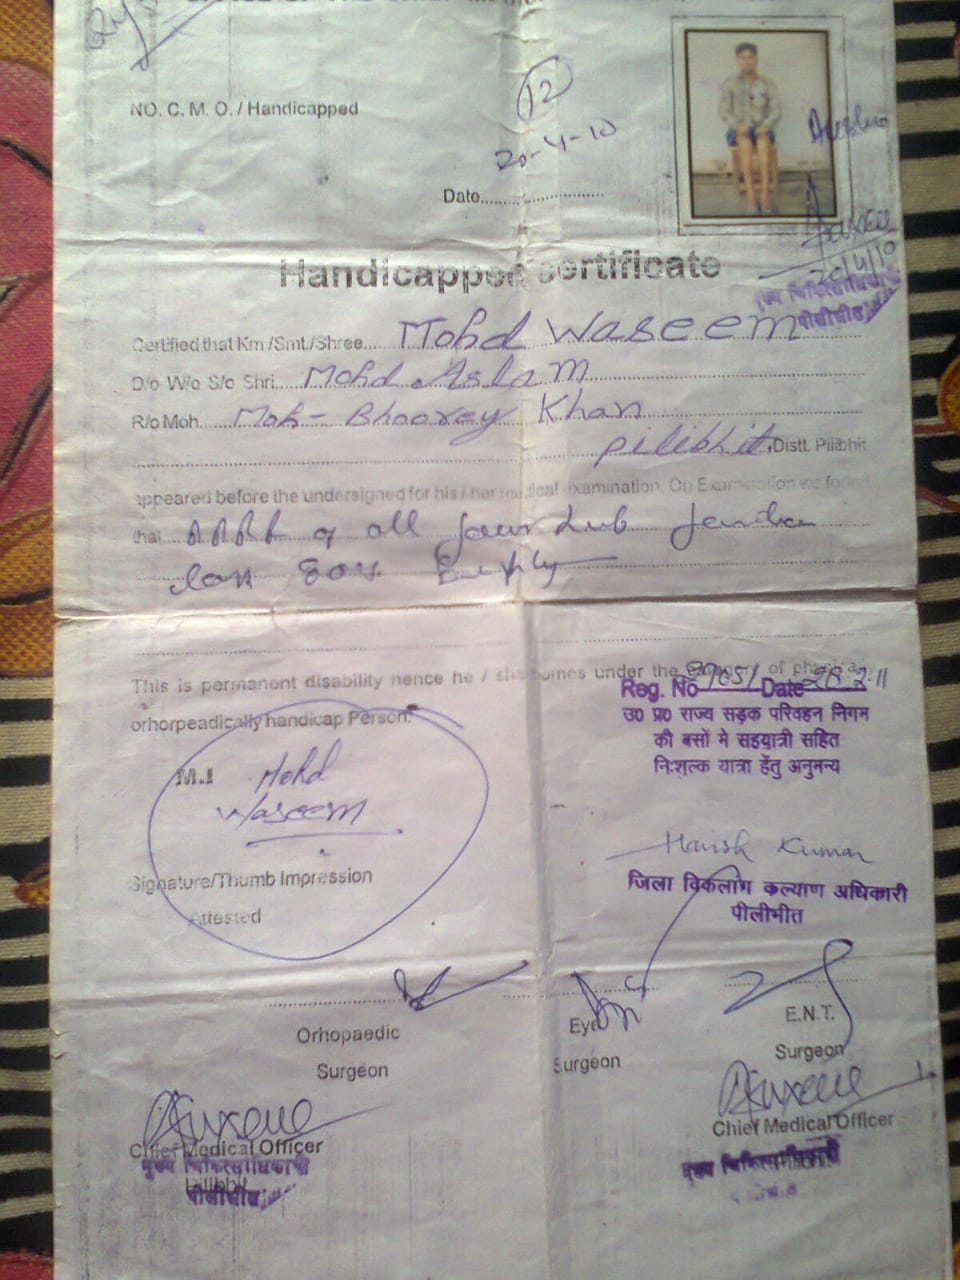 NO. C. M. O. / Handicapped
12
20-4-10
Date
Handicapped Certificate
20/4/10
मुख्य चिकित्साधिकारी
पीलीभीत
Certified that Km /Smt./Shree.... Mohd Waseem
D/o W/o S/o Shri.... Mohd Aslam
R/o Moh.... Moh- Bhoorey Khan
pilibhit, Distt. Pilibhit
appeared before the undersigned for his / her medical examination, On Examination we found
that PPRP of all four Limb
80%
This is permanent disability hence he / she comes under the category of physical
orhorpeadically handicap Person.
Reg. No 29051 Date 28.2.11
उ० प्र० राज्य सड़क परिवहन निगम
की बसों मे सहयात्री सहित
निःशुल्क यात्रा हेतु अनुमन्य
M.I Mohd
Waseem
Harish Kumar
Signature/Thumb Impression
जिला विकलांग कल्याण अधिकारी
पीलीभीत
Attested
Orhopaedic
Surgeon
Eye
Surgeon
E.N.T.
Surgeon
Chief Medical Officer
मुख्य चिकित्साधिकारी
पीलीभीत
Chief Medical Officer
मुख्य चिकित्साधिकारी